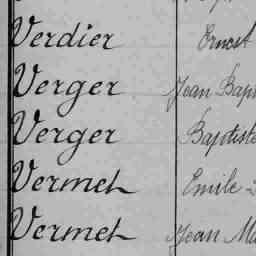 Verdier Ernest
Verger Jean Bap
Verger Baptiste
Vermeh Emile
Vermeh Jean Ma